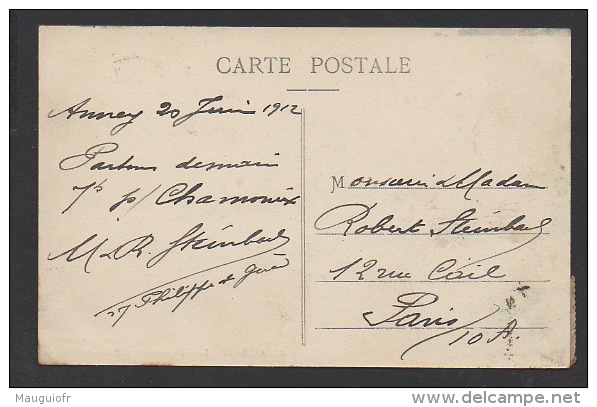 CARTE POSTALE
Annecy 20 Juin 1912
Partons demain
7h p/ Chamonix
M & R. Steinbach
27 Philippe de
Monsieur & Madame
Robert Steinbach
12 rue Cail
Paris
10 A.
Mauguiofr
www.delcampe.net